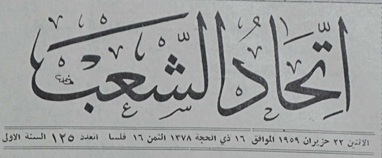 اتحاد الشعب
الاثنين ٢٢ حزيران ١٩٥٩ الموافق ١٦ ذي الحجة ١٣٧٨ الثمن ١٦ فلسا العدد ١٢٥ السنة الاولى